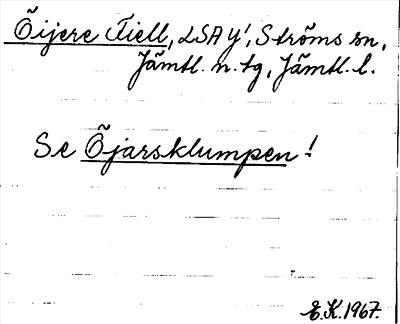 Õijere Fiell, LSA y', Ströms sn,
Jämtl. n. tg, Jämtl. l.
Se Õjarsklumpen!
E.K. 1967.